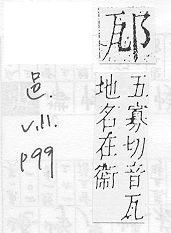 邷
五寡切音瓦
地名在衞
邑.
v.11.
p99